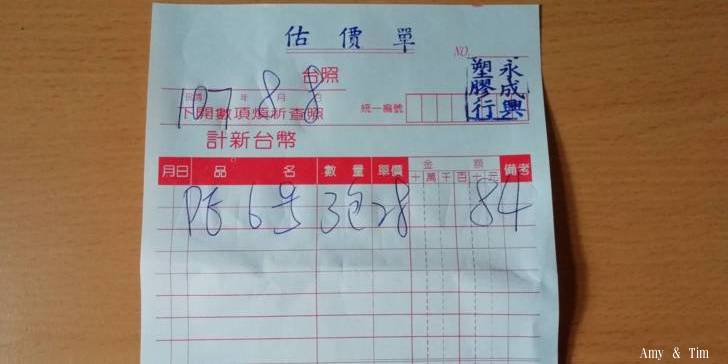 估價單
NO.
永成興
塑膠行
台照
民國 107 年 8 月 8 日
下開數項煩祈查照
統一編號
計新台幣
月日 品名 數量 單價 金額 備考
十萬千百十元
PE 6号 3包 28 84
Amy & Tim